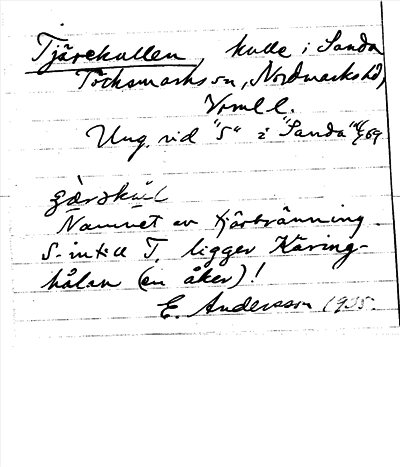 Tjärekullen, kulle i Sanda
Töcksmarks sn, Nordmarks hd,
Vrml l.
Ung. vid "S" i "Sanda" 69
Namnet av tjärbränning.
S. intill T. ligger Käring-
hålan (en åker)!
E. Andersson 1935.